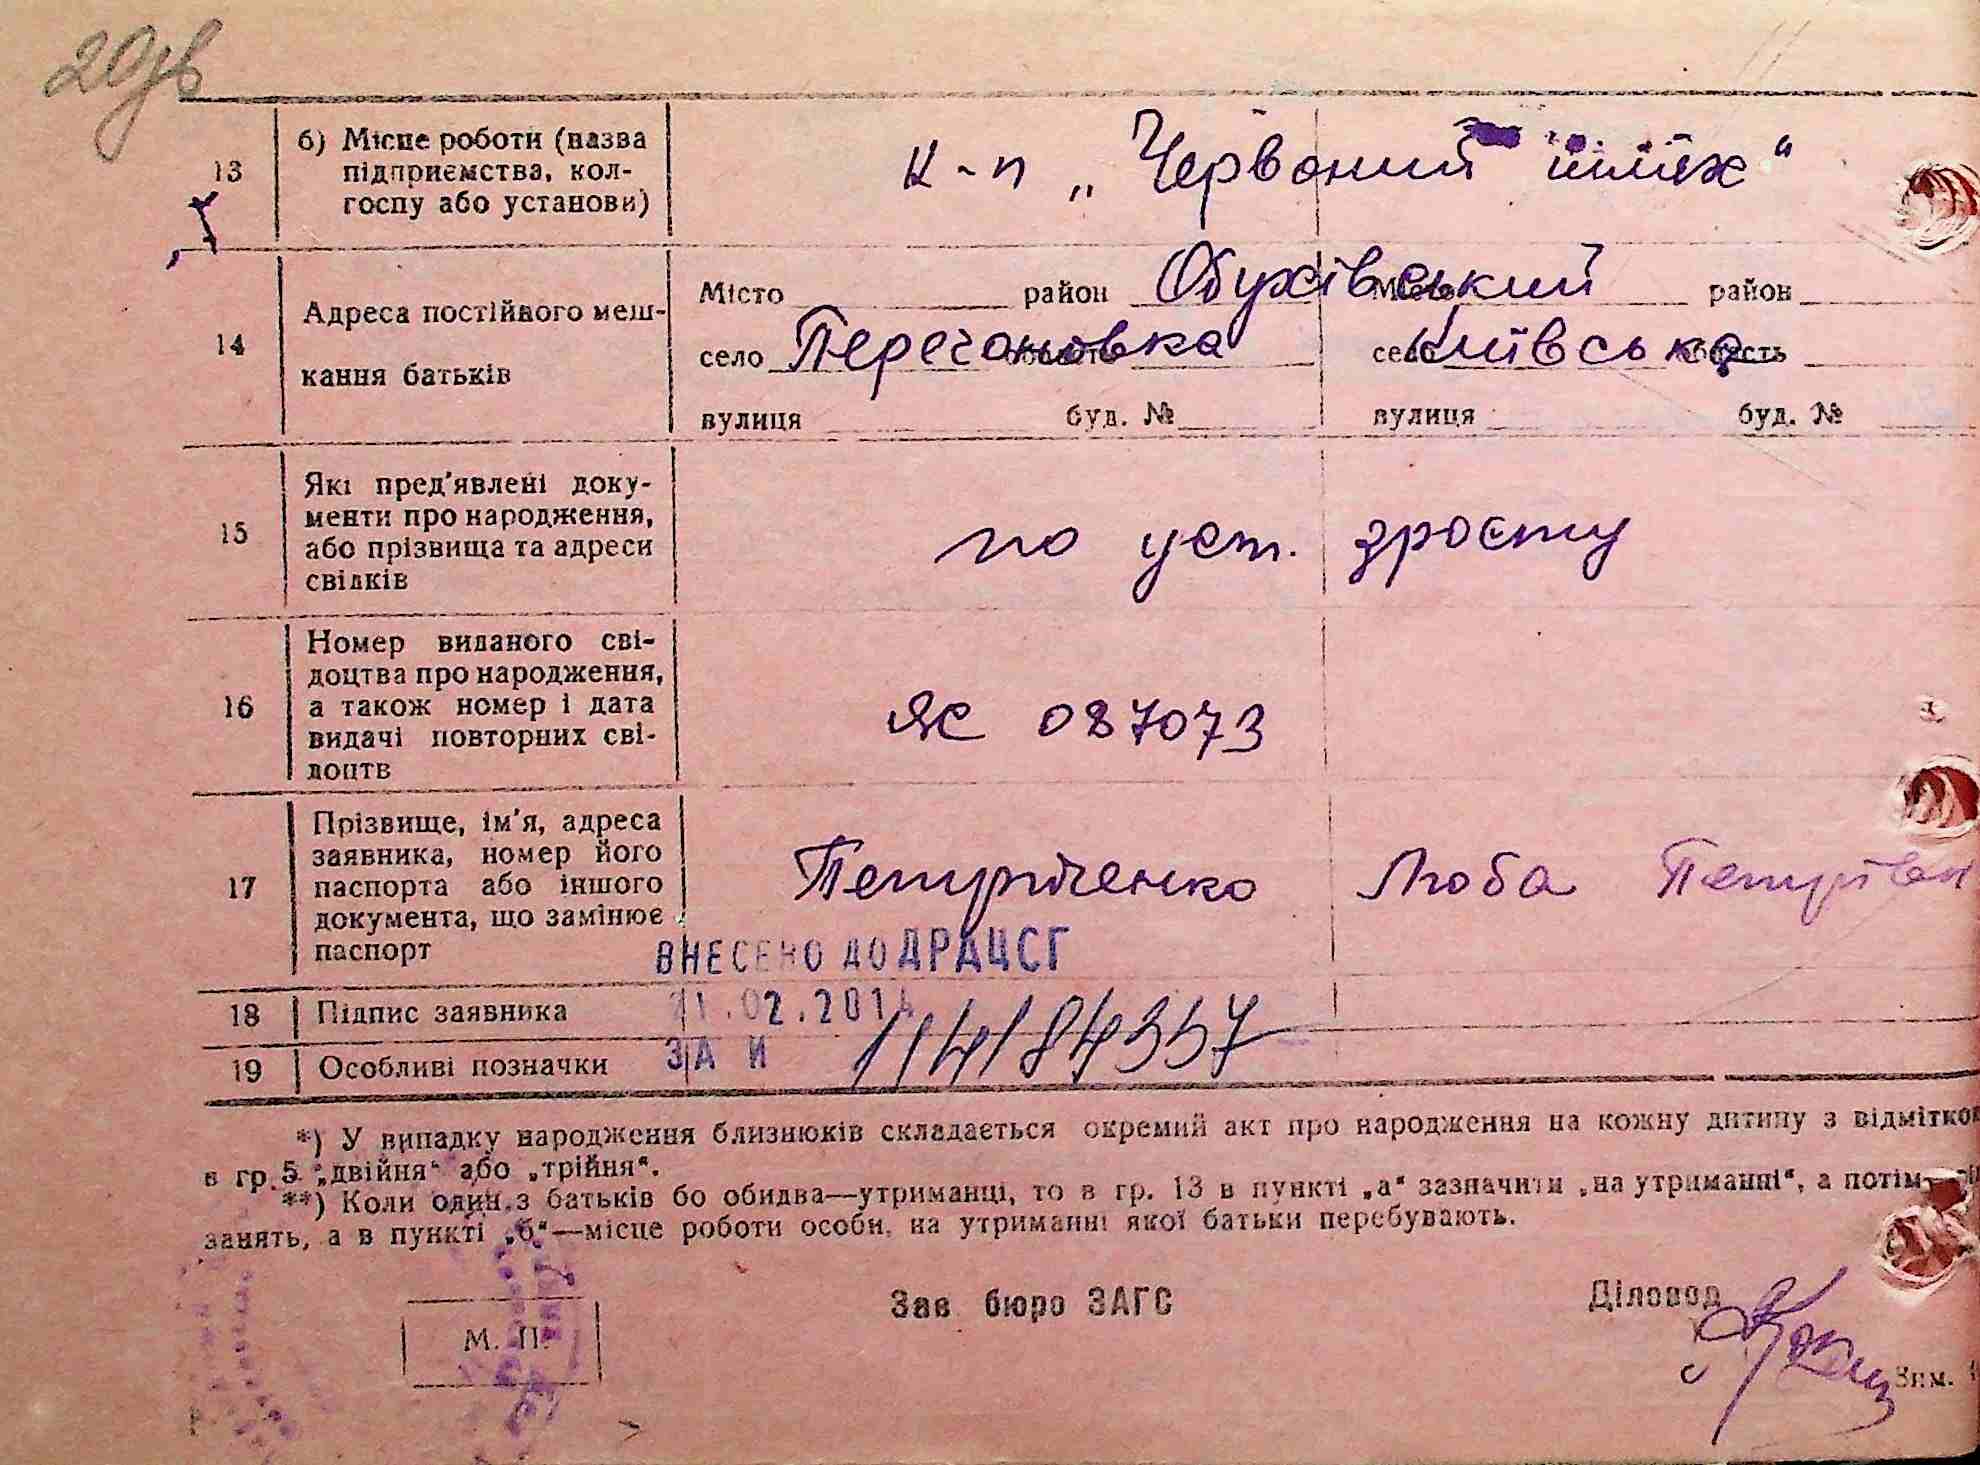 20 зв
13
б) Місце роботи (назва
підприємства, кол-
госпу або установи)
к-п „Червоний шлях“
14
Адреса постійного меш-
кання батьків
Місто район Обухівський Місто район
село Перегоновка область село Київська область
вулиця буд. № вулиця буд. №
15
Які пред'явлені доку-
менти про народження,
або прізвища та адреси
свідків
по уст. зросту
16
Номер виданого сві-
доцтва про народження,
а також номер і дата
видачі повторних сві-
доцтв
ЯС 087073
17
Прізвище, ім'я, адреса
заявника, номер його
паспорта або іншого
документа, що замінює
паспорт
Люба
ВНЕСЕНО ДО ДРАЦСГ
18 Підпис заявника
.02.2014
19 Особливі позначки
ЗА И
*) У випадку народження близнюків складається окремий акт про народження на кожну дитину з відміткою
в гр. 5 „двійня“ або „трійня“.
**) Коли один з батьків бо обидва—утриманці, то в гр. 13 в пункті „а“ зазначити „на утриманні“, а потім
занять, а в пункті „б“—місце роботи особи, на утриманні якої батьки перебувають.
Зав бюро ЗАГС
Діловод
М. П.
Зим.